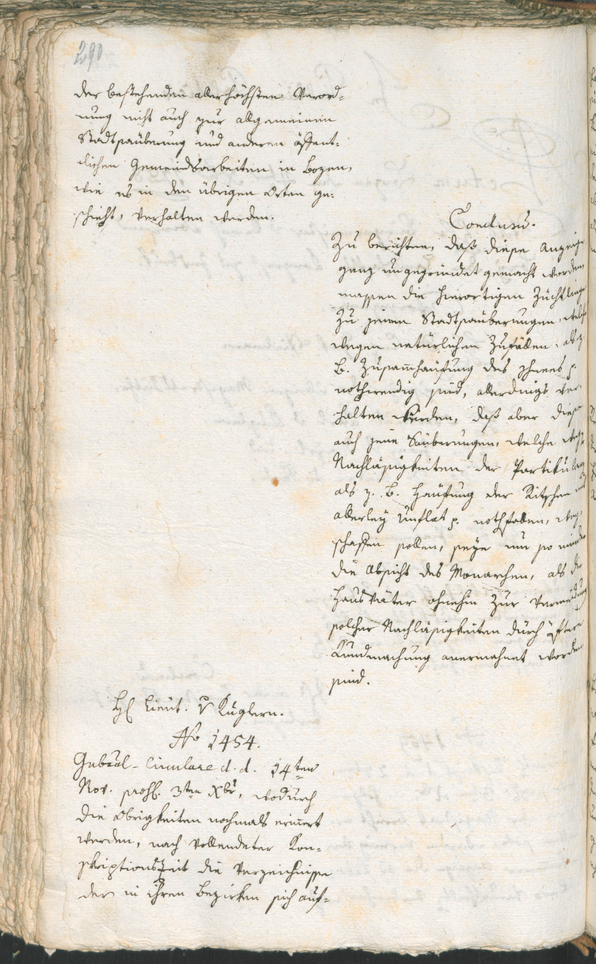 290
der bestehenden allerhöchsten Verord-
nung nicht auch zur allgemeinen
Stadtsäuberung und anderen öffent-
lichen Gemeindsarbeiten in Bozen,
wie es in den übrigen Orten ge-
schieht, verhalten werden.
Conclusu.
Zu berichten, daß diese Anzeige
ganz ungegründet gemacht werden
massen die hierortigen Züchtlinge
zu jenen Stadtsäuberungen, welche
wegen natürlichen Zufällen, als z.
B. Zusammhäufung des Schnees p.
nothwendig sind, allerdings ver-
halten werden, daß aber diese
auch jene Säuberungen, welche
Nachläßigkeiten der Partikularen
als z. B. Häufung der
allerley Unflat p.
schaffen sollen, seye um so minder
die Absicht des Monarchen, als die
Hausväter ohnehin zur Vermeidung
solcher Nachläßigkeiten durch öftere
Kundmachung anermahnet worden
sind.
H Lieut. v Kuglern.
No 1454.
Gubral-Circulare d. d. 14ten
Nov. 3ten Xbr, wodurch
die Obrigkeiten nochmals erinert
werden, nach vollendeter Kon-
skriptionszeit die Verzeichnisse
der in ihren Bezirken sich auf-